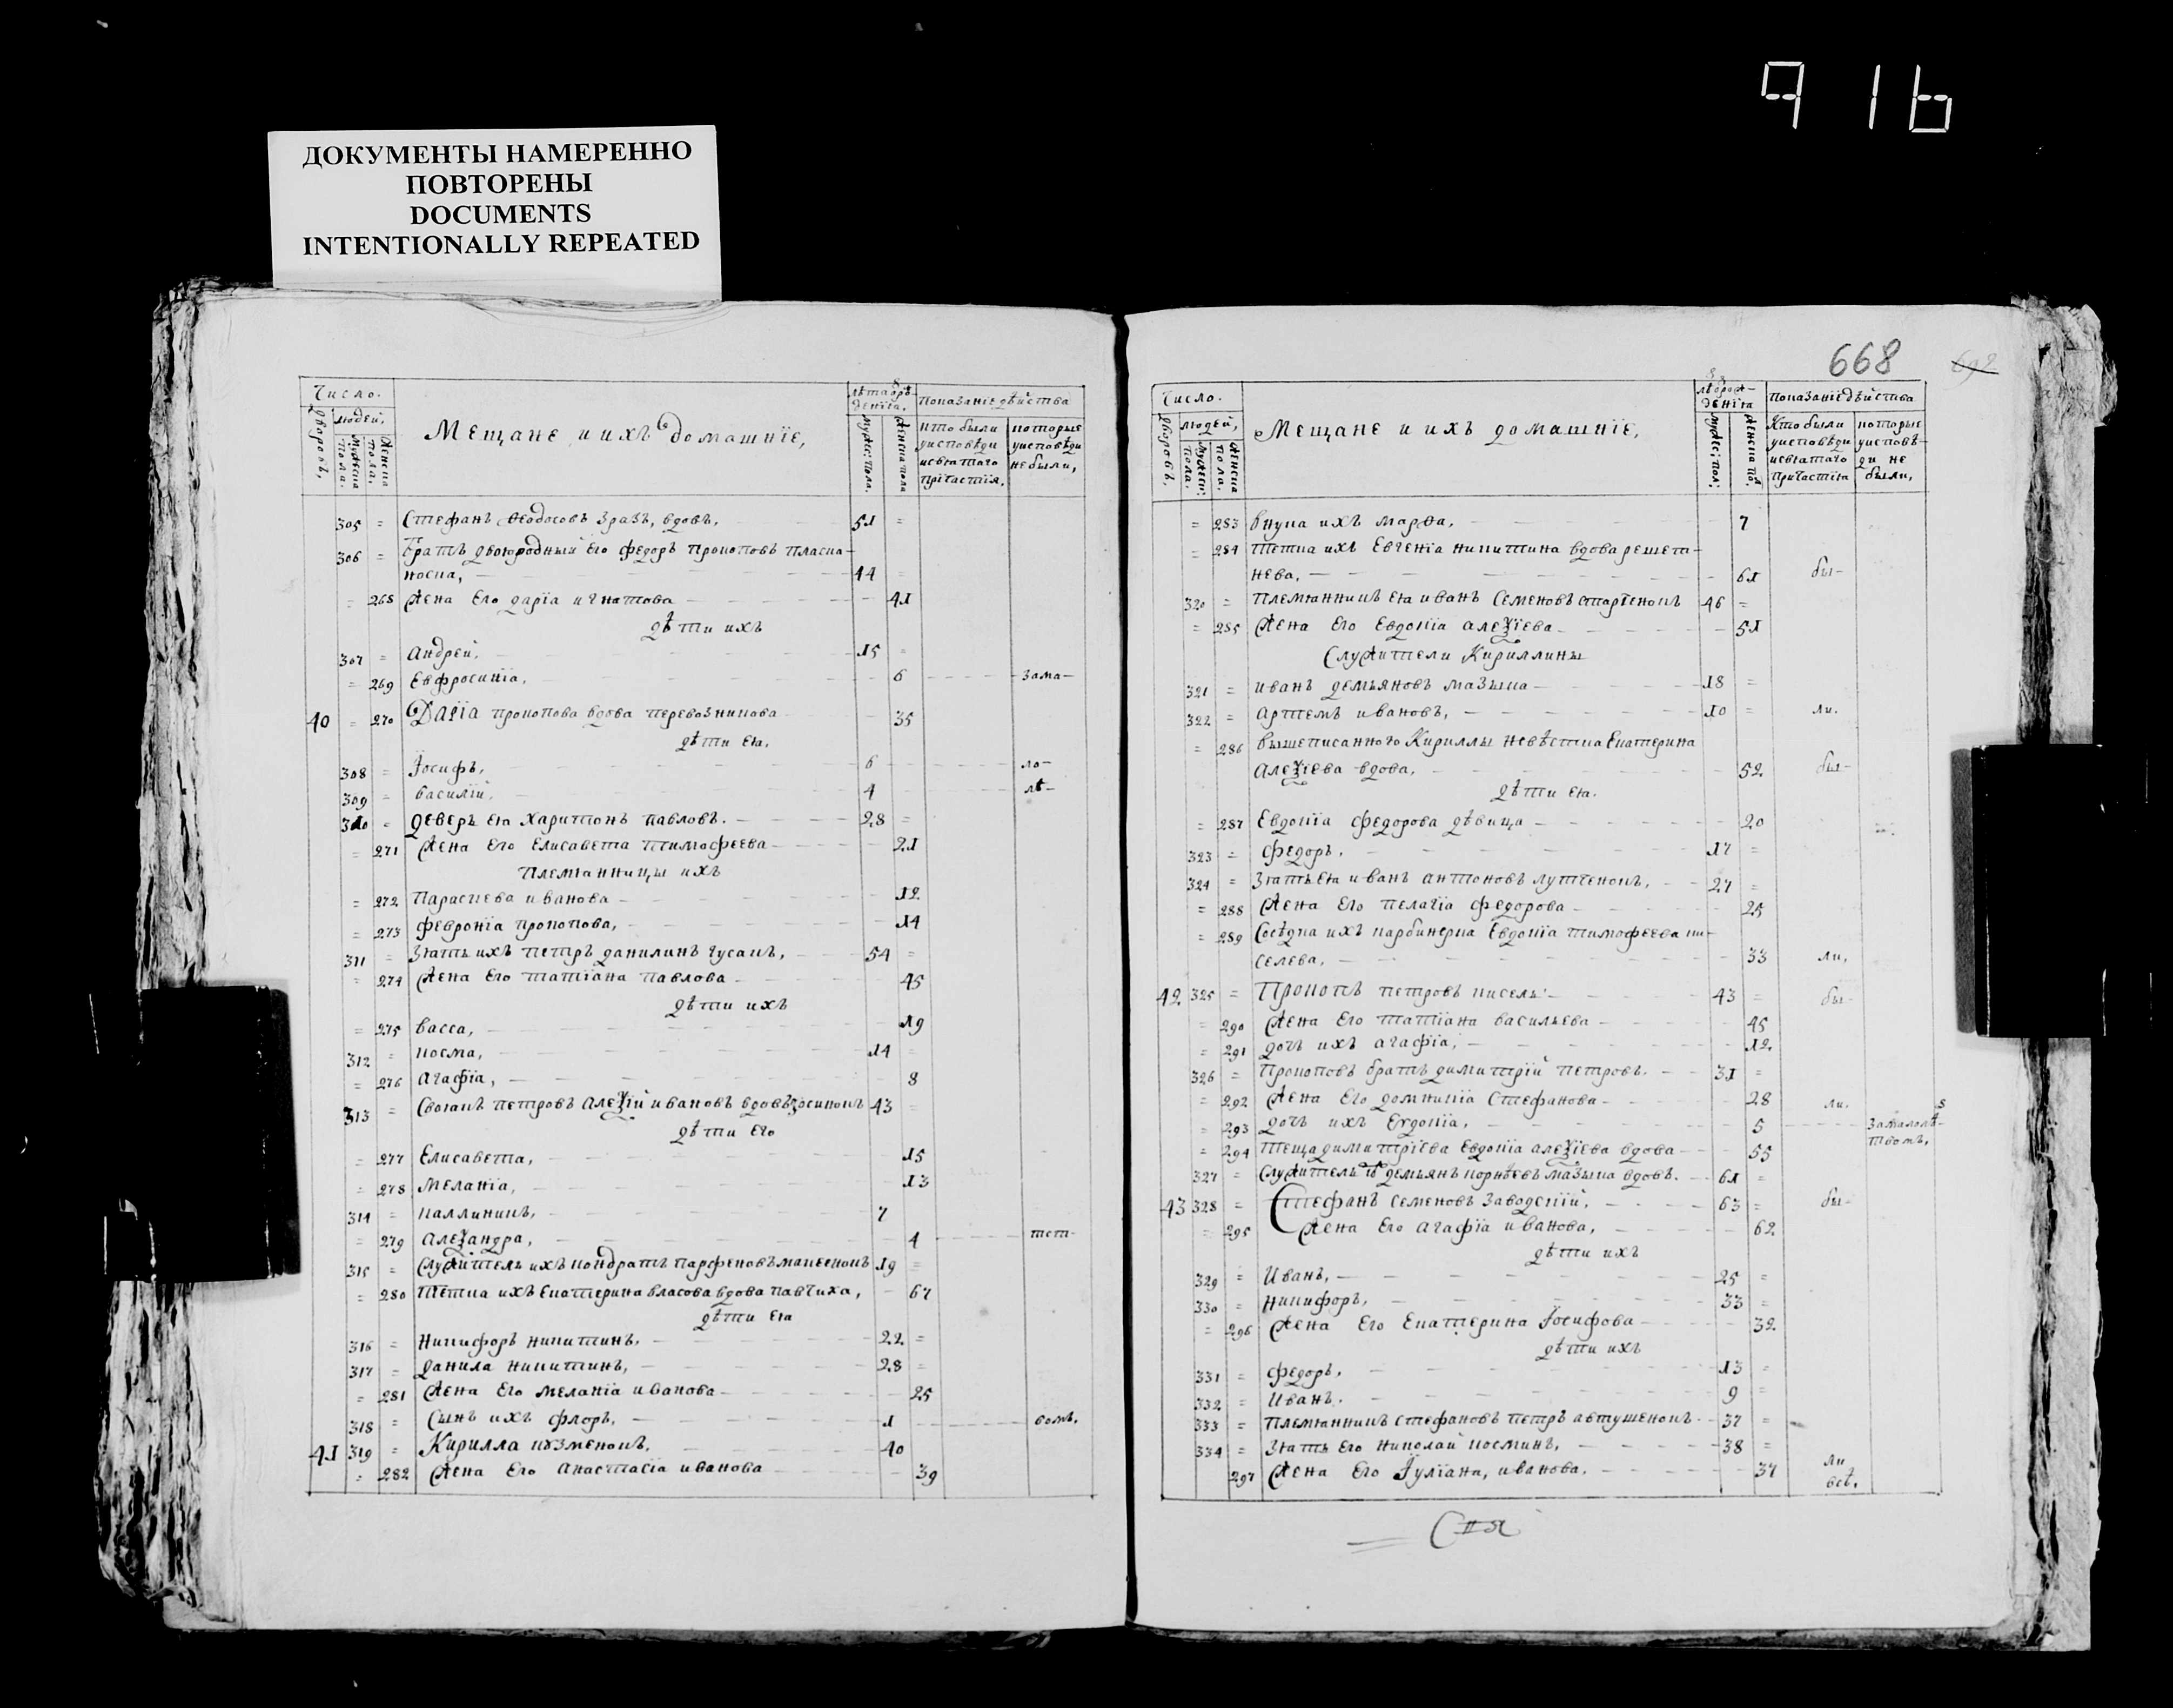 916
ДОКУМЕНТЫ НАМЕРЕННО
ПОВТОРЕНЫ
DOCUMENTS
INTENTIONALLY REPEATED
668
Число. Мещане и ихъ домашніе, Показаніе дѣйства
людей,
305 = Стефанъ Ѳеодосовъ Зразъ, вдовъ. 51 =
306 = Братъ двоюродный его федоръ прокоповъ пласко-
носка, 44
= 268 Жена Его дарїа игнатова 41
дѣти ихъ
307 = Андрей, 15 =
= 269 Евфросинїа, 6 зама-
40 = 270 Дарїа прокопова вдова перевозникова 35
дѣти Ея.
308 = Іосифъ, 6 ло-
309 = василїй, 4 лѣ-
310 = деверъ Ея Харитонъ павловъ. 28 =
= 271 Жена Его Елисавета тимофеева 21
племянницы ихъ
= 272 Параскева иванова 12
= 273 февронїа прокопова, 14
311 = Зять ихъ петръ данилинъ гусакъ, 54 =
= 274 Жена Его татїана павлова 45
дѣти ихъ
= 275 васса, 19
312 = косма, 14 =
= 276 агафїа, 8
313 = Своякъ петровъ алеѯїй ивановъ вдовъ 43
дѣти Его
= 277 Елисавета, 15
= 278 меланїа, 13
314 = каллиникъ, 7
= 279 алеѯандра, 4 тст-
315 = Служитель ихъ кондратъ парфеновъ 19 =
= 280 Тетка ихъ Екатерина власова вдова павчиха, 67
дѣти Ея
316 = Никифоръ никитинъ, 22 =
317 = данила никитинъ, 28 =
= 281 Жена Его меланїа иванова 25
318 = Сынъ ихъ флоръ, 1 вомъ.
41 319 = Кирилла кузменокъ, 40
= 282 Жена Его анастасїа иванова 39
Число. Мещане и ихъ домашнїе, Показанїе дѣйства
людей,
= 283 внука ихъ марѳа, 7
= 284 тетка ихъ Евгенїа никитина вдова решет-
нева, 61 бы-
320 = племянникъ Ея иванъ Семеновъ старченокъ 46 =
= 285 Жена Его Евдокїа алеѯїева 51
Служители Кириллины
321 = иванъ демьяновъ мазыка 18 =
322 = артемъ ивановъ, 10 = ли.
= 286 вышеписанного Кириллы невѣстка Екатерина
алеѯїева вдова, 52 бы-
дѣти Ея.
= 287 Евдокїа федорова дѣвица 20
323 = федоръ, 17 =
324 = Зять Ея иванъ антоновъ лутченокъ, 27 =
= 288 Жена Его пелагїа федорова 25
= 289 Сосѣдка ихъ Евдокїа тимофеева ки-
селева, 33 ли,
42 325 = Прокопъ петровъ кисель 43 = бы-
= 290 Жена Его татїана васильева 45
= 291 дочь ихъ агафїа, 12
326 = Прокоповъ братъ димитрїй петровъ. 31 =
= 292 Жена Его домникїа Стефанова 28 ли.
= 293 дочь ихъ Евдокїа, 5 замалолѣт-
ствомъ,
= 294 Теща димитрїева Евдокїа алеѯїева вдова 55
327 = Служитель демьянъ корнѣевъ мазыка вдовъ. 61 =
43 328 = Стефанъ Семеновъ Заводскїй, 63 = бы-
= 295 Жена Его агафїа иванова, 62
дѣти ихъ
329 = Иванъ, 25 =
330 = никифоръ, 33 =
= 296 Жена Его Екатерина Іосифова 32
дѣти ихъ
331 = федоръ, 13 =
332 = Иванъ. 9 =
333 = племянникъ стефановъ петръ автушенокъ 37 =
334 = Зять Его николай косминъ, 38 =
297 Жена Его Іулїана, иванова. 37 ли
всѣ,